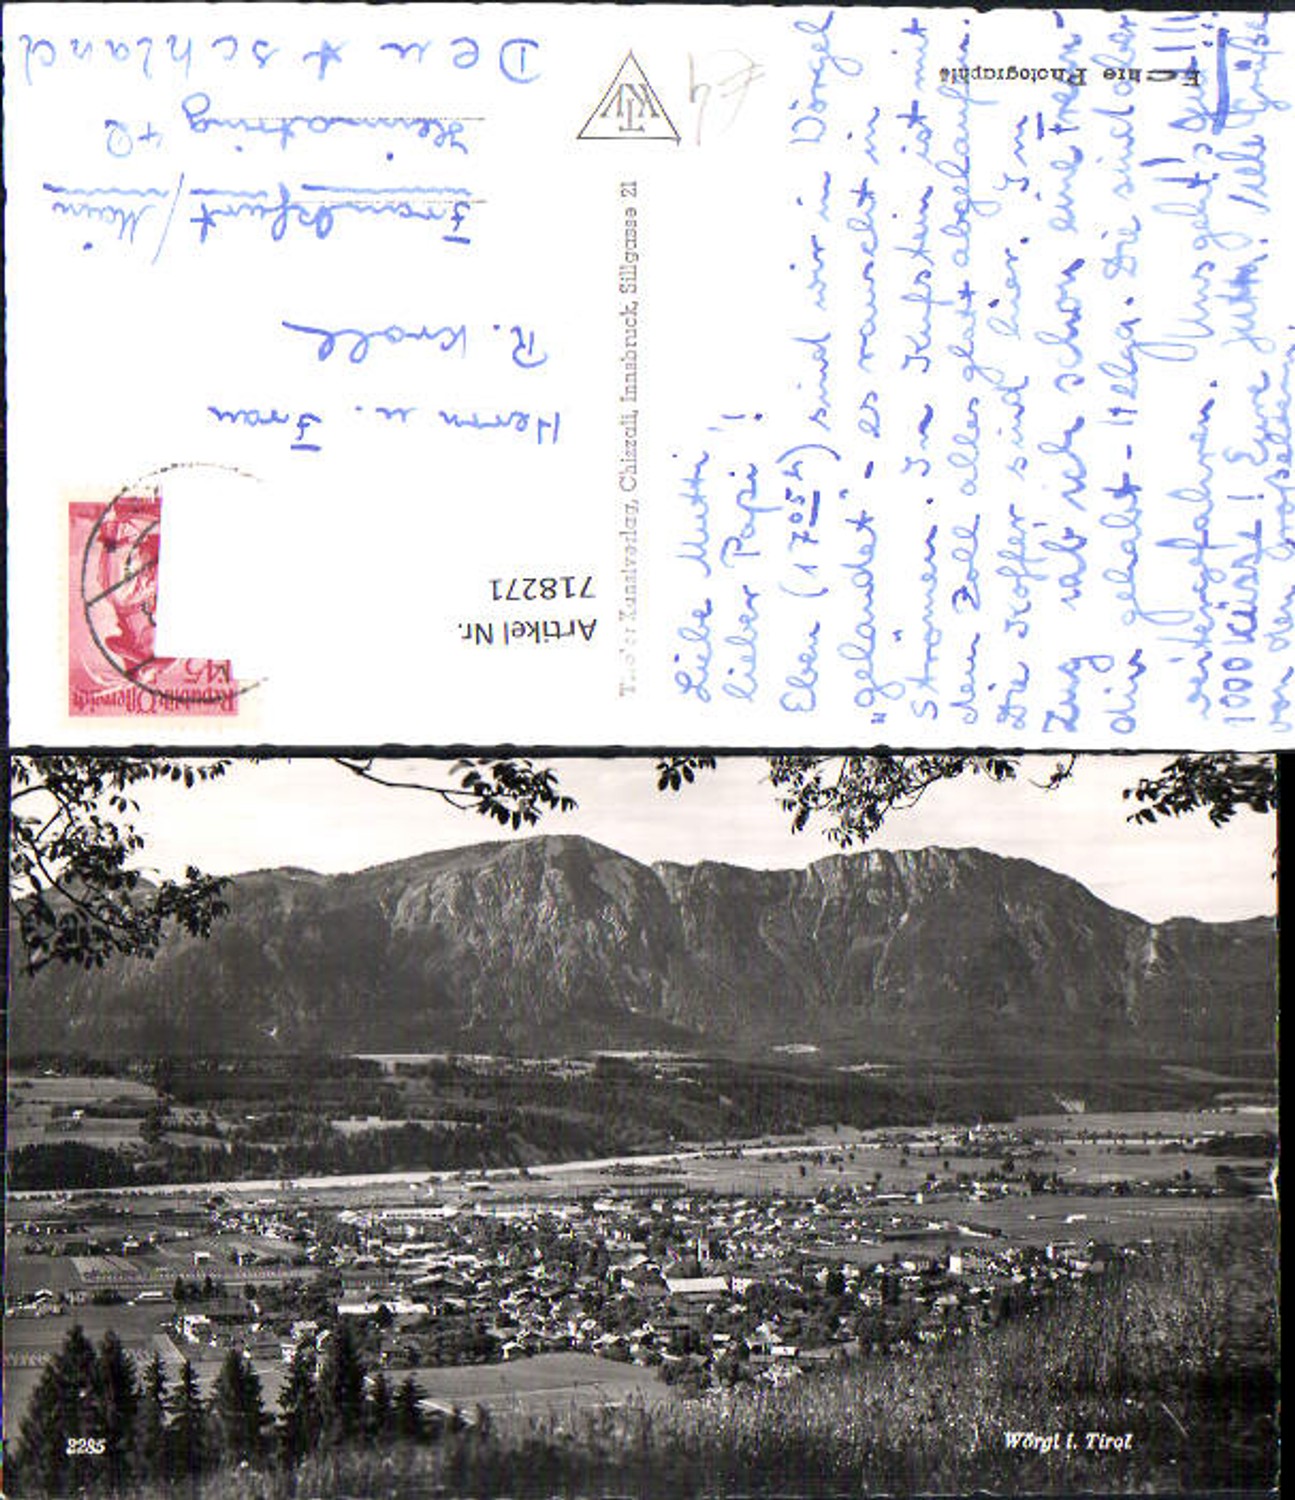 Liebe Mutti
lieber Papi!
Eben (17 05 h) sind wir in Wörgl
„gelandet" - es rauscht in
Strömen. In Kufstein ist mit
dem Zoll alles glatt abgelaufen.
Die Koffer sind hier. Im
Zug hab ich schon eine
drin gehabt - Helga. Die sind aber
weitergefahren. Uns geht's gut!!!
1000 Küsse! Eure Jutta. Viele Grüße
von den Großeltern.
Echte Photographie
KTV
Tiroler Kunstverlag, Chizzali, Innsbruck, Sillgasse 21
Artikel Nr.
718271
Republik Österreich
1.45
Herrn u. Frau
R. Kroll
Frankfurt/Main
Heimatring 42
Deutschland
2285
Wörgl i. Tirol